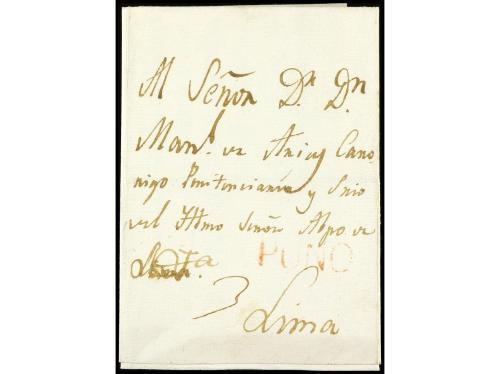 Al Señor Dr. Dn
Manl. de Arias Cano-
nigo Penitenciario y Srio
del Illmo Señor Obpo de
PUNO
3
Lima